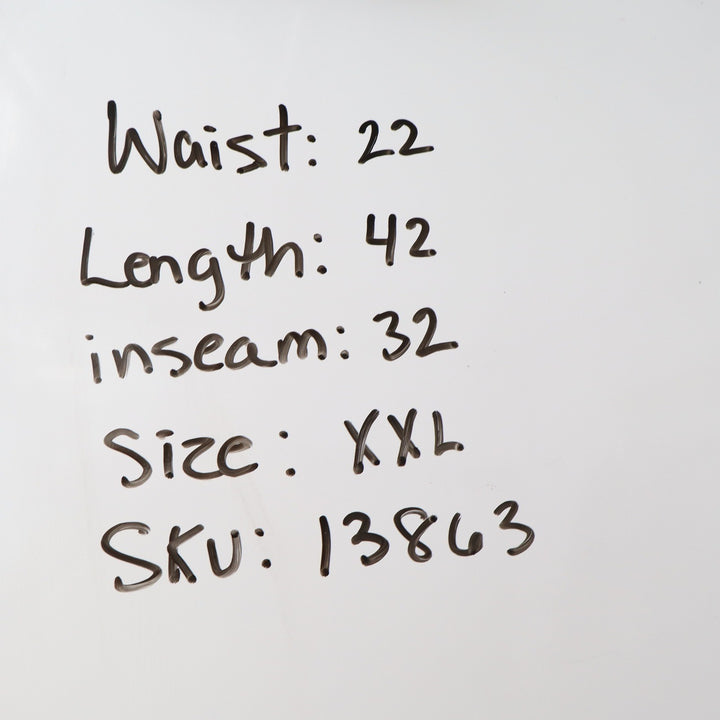 Waist: 22
Length: 42
inseam: 32
Size: XXL
SKU: 13863